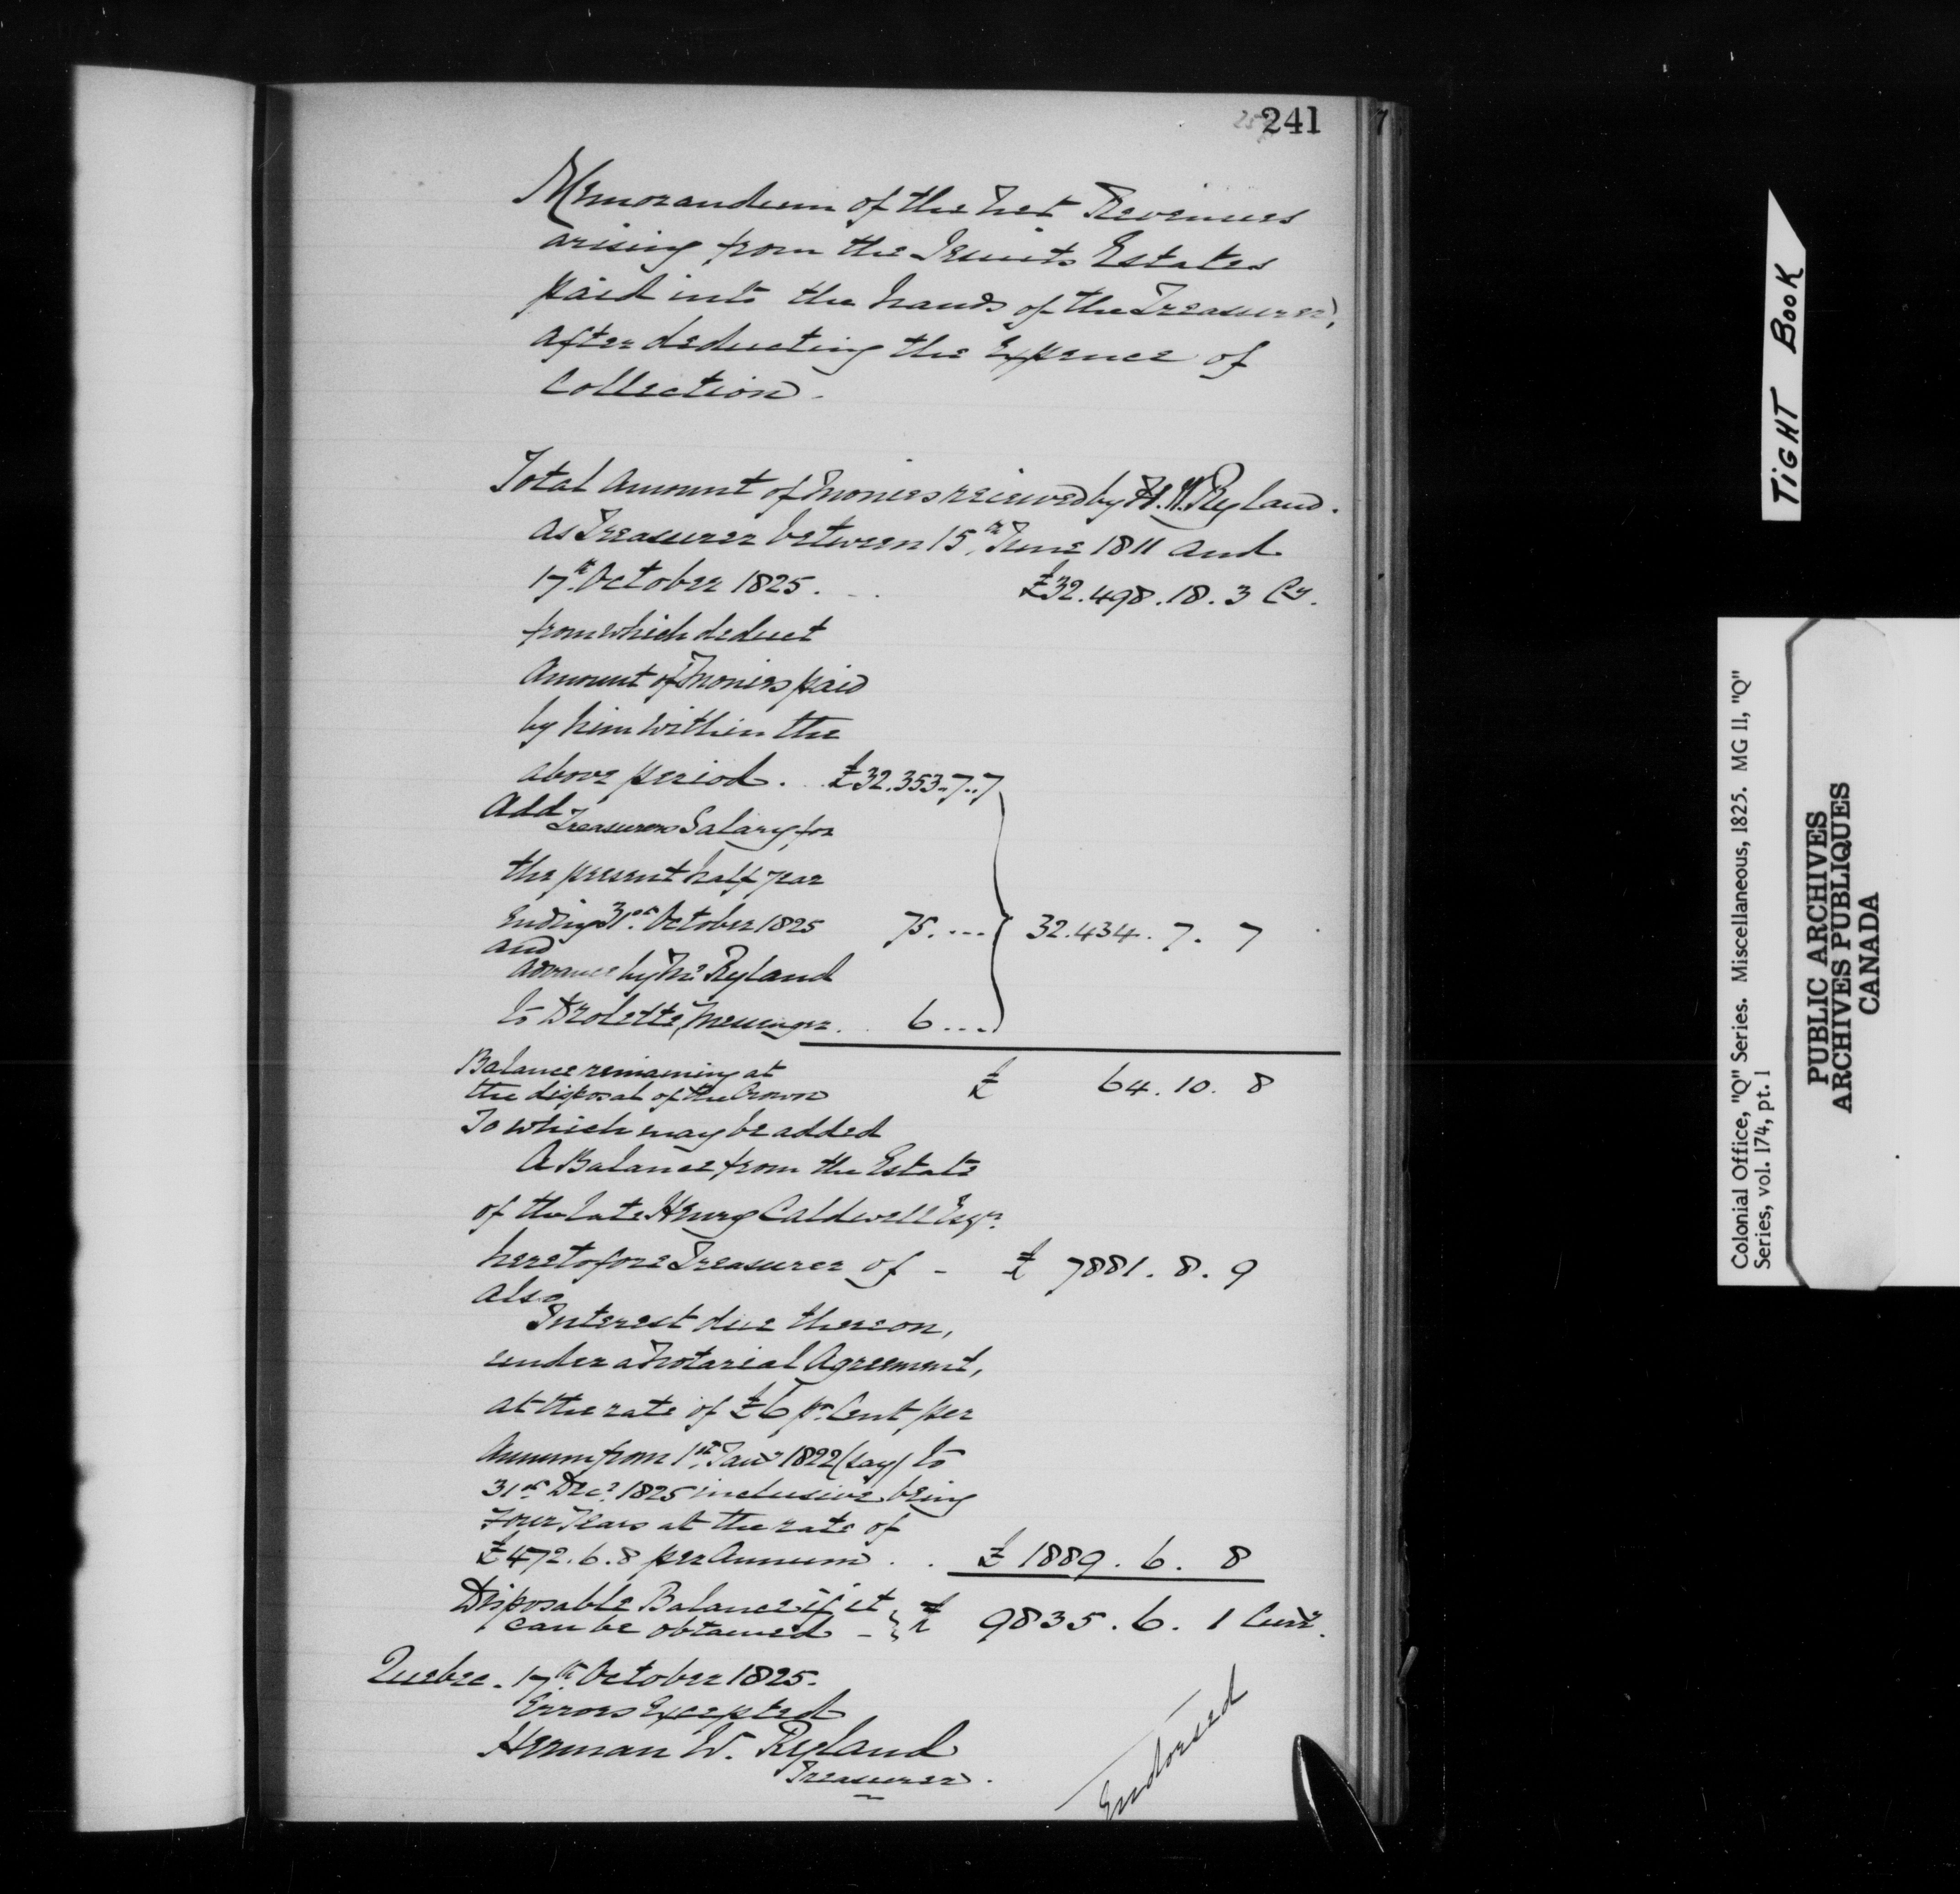 241
Memorandum of the Net Revenues
arising from the Jesuits Estates
paid into the hands of the Treasurer,
after deducting the Expence of
Collection.
Total Amount of Monies received by H. W. Ryland.
as Treasurer between 15.th June 1811 and
17.th October 1825. . . £32.498.18.3 Cy.
from which deduct
Amount of Monies paid
by him within the
above period. . £32.353.7.7
Add
Treasurers Salary for
the present half year
Ending 31st. October 1825 75. ... 32.434. 7. 7
and
advance by Mr. Ryland
to Drolette Messenger. . 6 ...
Balance remaining at
the disposal of the Crown £ 64. 10. 8
To which may be added
A Balance from the Estate
of the late Henry Caldwell Esqr.
heretofore Treasurer of - £ 7881. 8. 9
also
Interest due thereon,
under a Notarial Agreement,
at the rate of £6 pr. Cent per
Annum from 1st. Jany 1822 (say) to
31st. Decr. 1825 inclusive being
Four Years at the rate of
£472.6.8 per Annum . . £ 1889. 6. 8
Disposable Balance if it
can be obtained - £ 9835. 6. 1 Curry.
Quebec. 17th October 1825.
Errors Excepted
Herman W. Ryland
Treasurer.
Endorsed
7
TIGHT BOOK
Colonial Office, "Q" Series. Miscellaneous, 1825. MG 11, "Q"
Series, vol. 174, pt. 1
PUBLIC ARCHIVES
ARCHIVES PUBLIQUES
CANADA